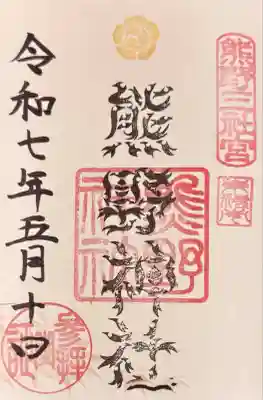 熊野三社宮
熊野神社
熊野神社
令和七年五月十四日
参拝